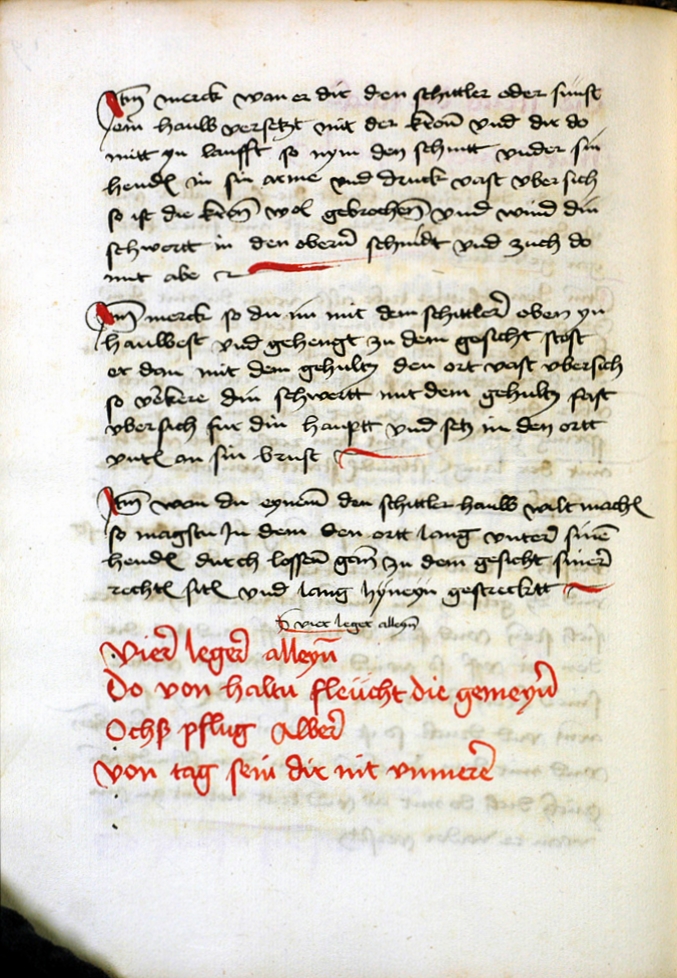 Itm merck wan er dir den schittler oder sünst
ein hauw versetzt mit der kron vnd dir do
mitt yn laufft so nym den schnitt vnder sin
hendl in sin arme vnd druck vast vber sich
so ist die kron wol gebrochen vnd wind din
schwertt in den obern schnidt vnd zuch do
mit abe
Itm merck so du im mit dem schittler oben yn
hauwest vnd gehengt zu dem gesicht stost
er dan mit dem gehultz den ort vast vbersich
so verkere din schwertt mit dem gehultz fast
vbersich fur din hauptt vnd setz im den ortt
vntl an sin brust
Itm wan du eynem den schittler hauw wilt machl
so magstu In dem den ortt lang vnter sinen
hendl durch lossen gan zu dem gesicht siner
rechtl sitl vnd lang hyneyn gestrecktt
vier leger alleyn
Vier leger alleyn
Do von haltn fleücht die gemeyn
Ochß pflug Alber
von tag sein dir nit vnmere